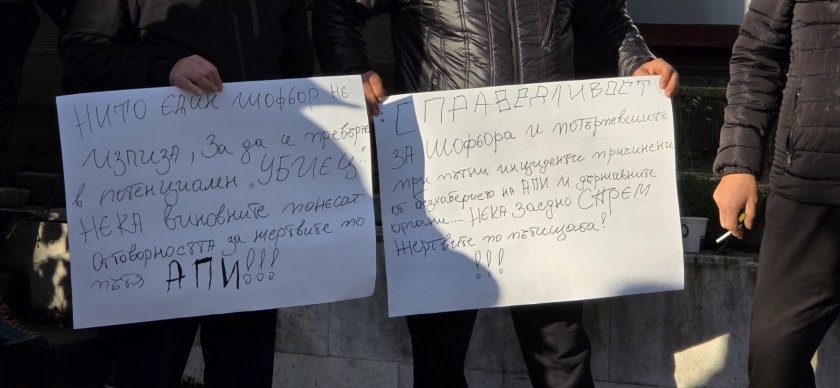 НИТО ЕДИН ШОФЬОР НЕ
ИЗЛИЗА, За да се превърне
в потенциален „УБИЕЦ".
НЕКА виновните понесат
отговорността за жертвите по
пътя АПИ!!!
СПРАВЕДЛИВОСТ
ЗА шофьора и потърпевшите
при пътни инциденти причинени
от безхаберието на АПИ и държавните
органи..... НЕКА заедно СПРЕМ
жертвите по пътищата!
!!!